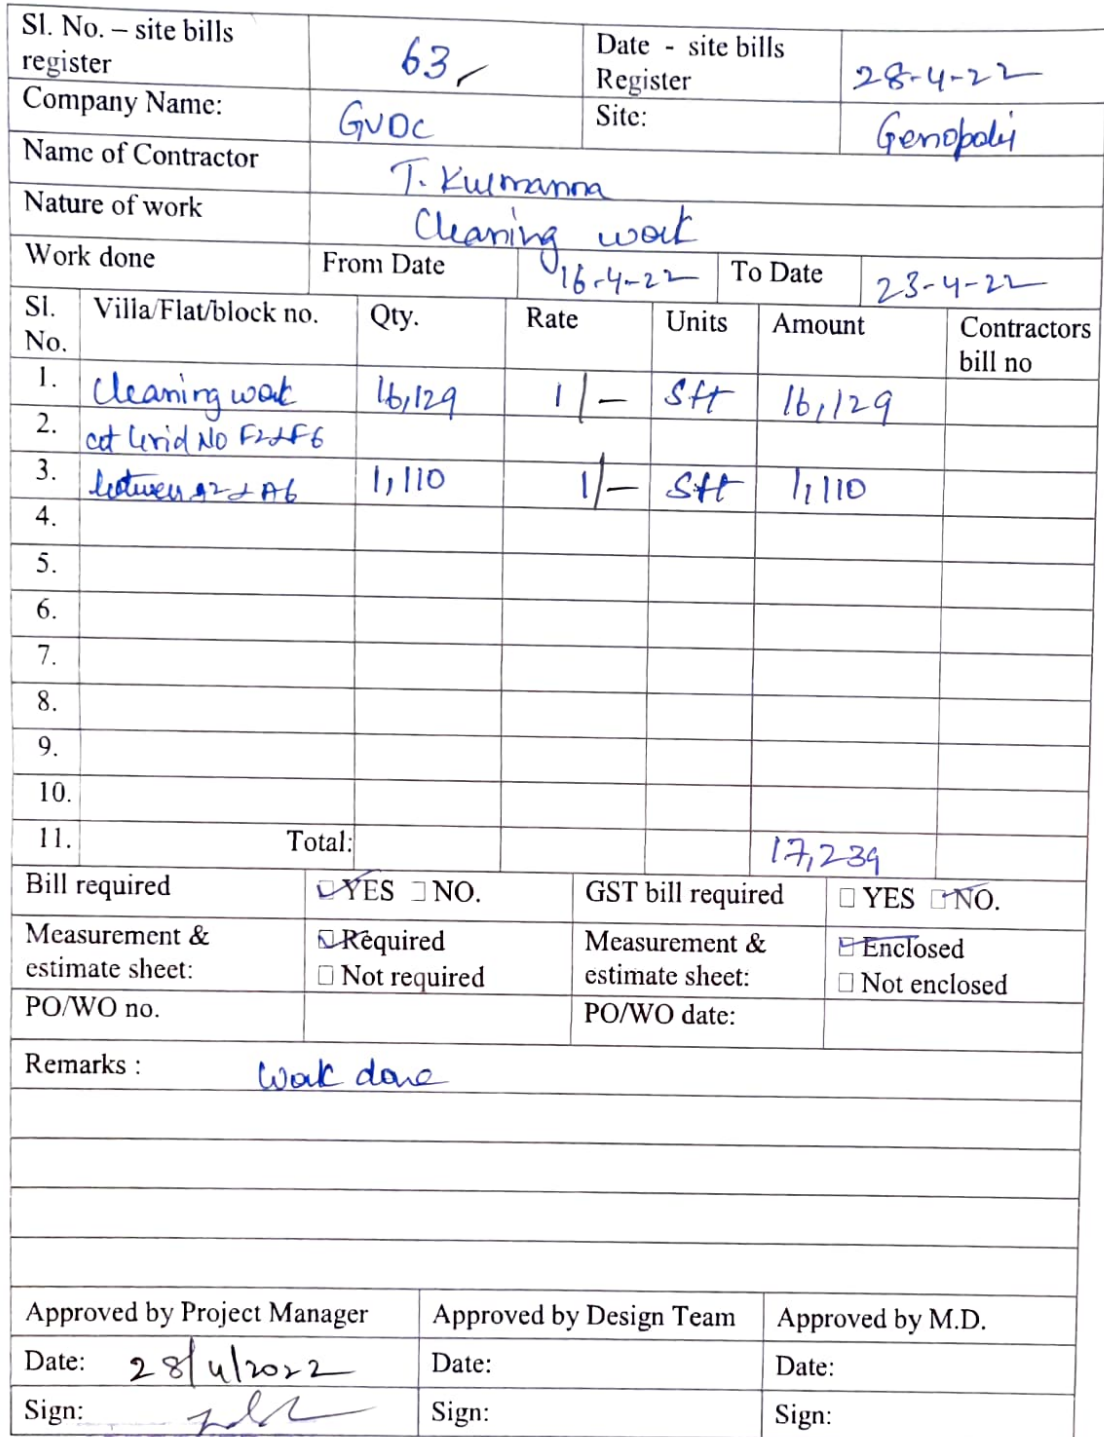 Sl. No. – site bills register 63 Date - site bills Register 28-4-22
Company Name: GVDC Site: Genopolis
Name of Contractor T. Kurmanna
Nature of work Cleaning work
Work done From Date 16-4-22 To Date 23-4-22
Sl. No. Villa/Flat/block no. Qty. Rate Units Amount Contractors bill no
1. Cleaning work 16,129 1/- Sft 16,129
2. at Grid No F2&F6
3. between A2 & A6 1,110 1/- Sft 1,110
4.
5.
6.
7.
8.
9.
10.
11. Total: 17,239
Bill required YES NO. GST bill required YES NO.
Measurement & estimate sheet: Required Not required Measurement & estimate sheet: Enclosed Not enclosed
PO/WO no. PO/WO date:
Remarks : Work done
Approved by Project Manager Approved by Design Team Approved by M.D.
Date: 28/4/2022 Date: Date:
Sign: Sign: Sign: